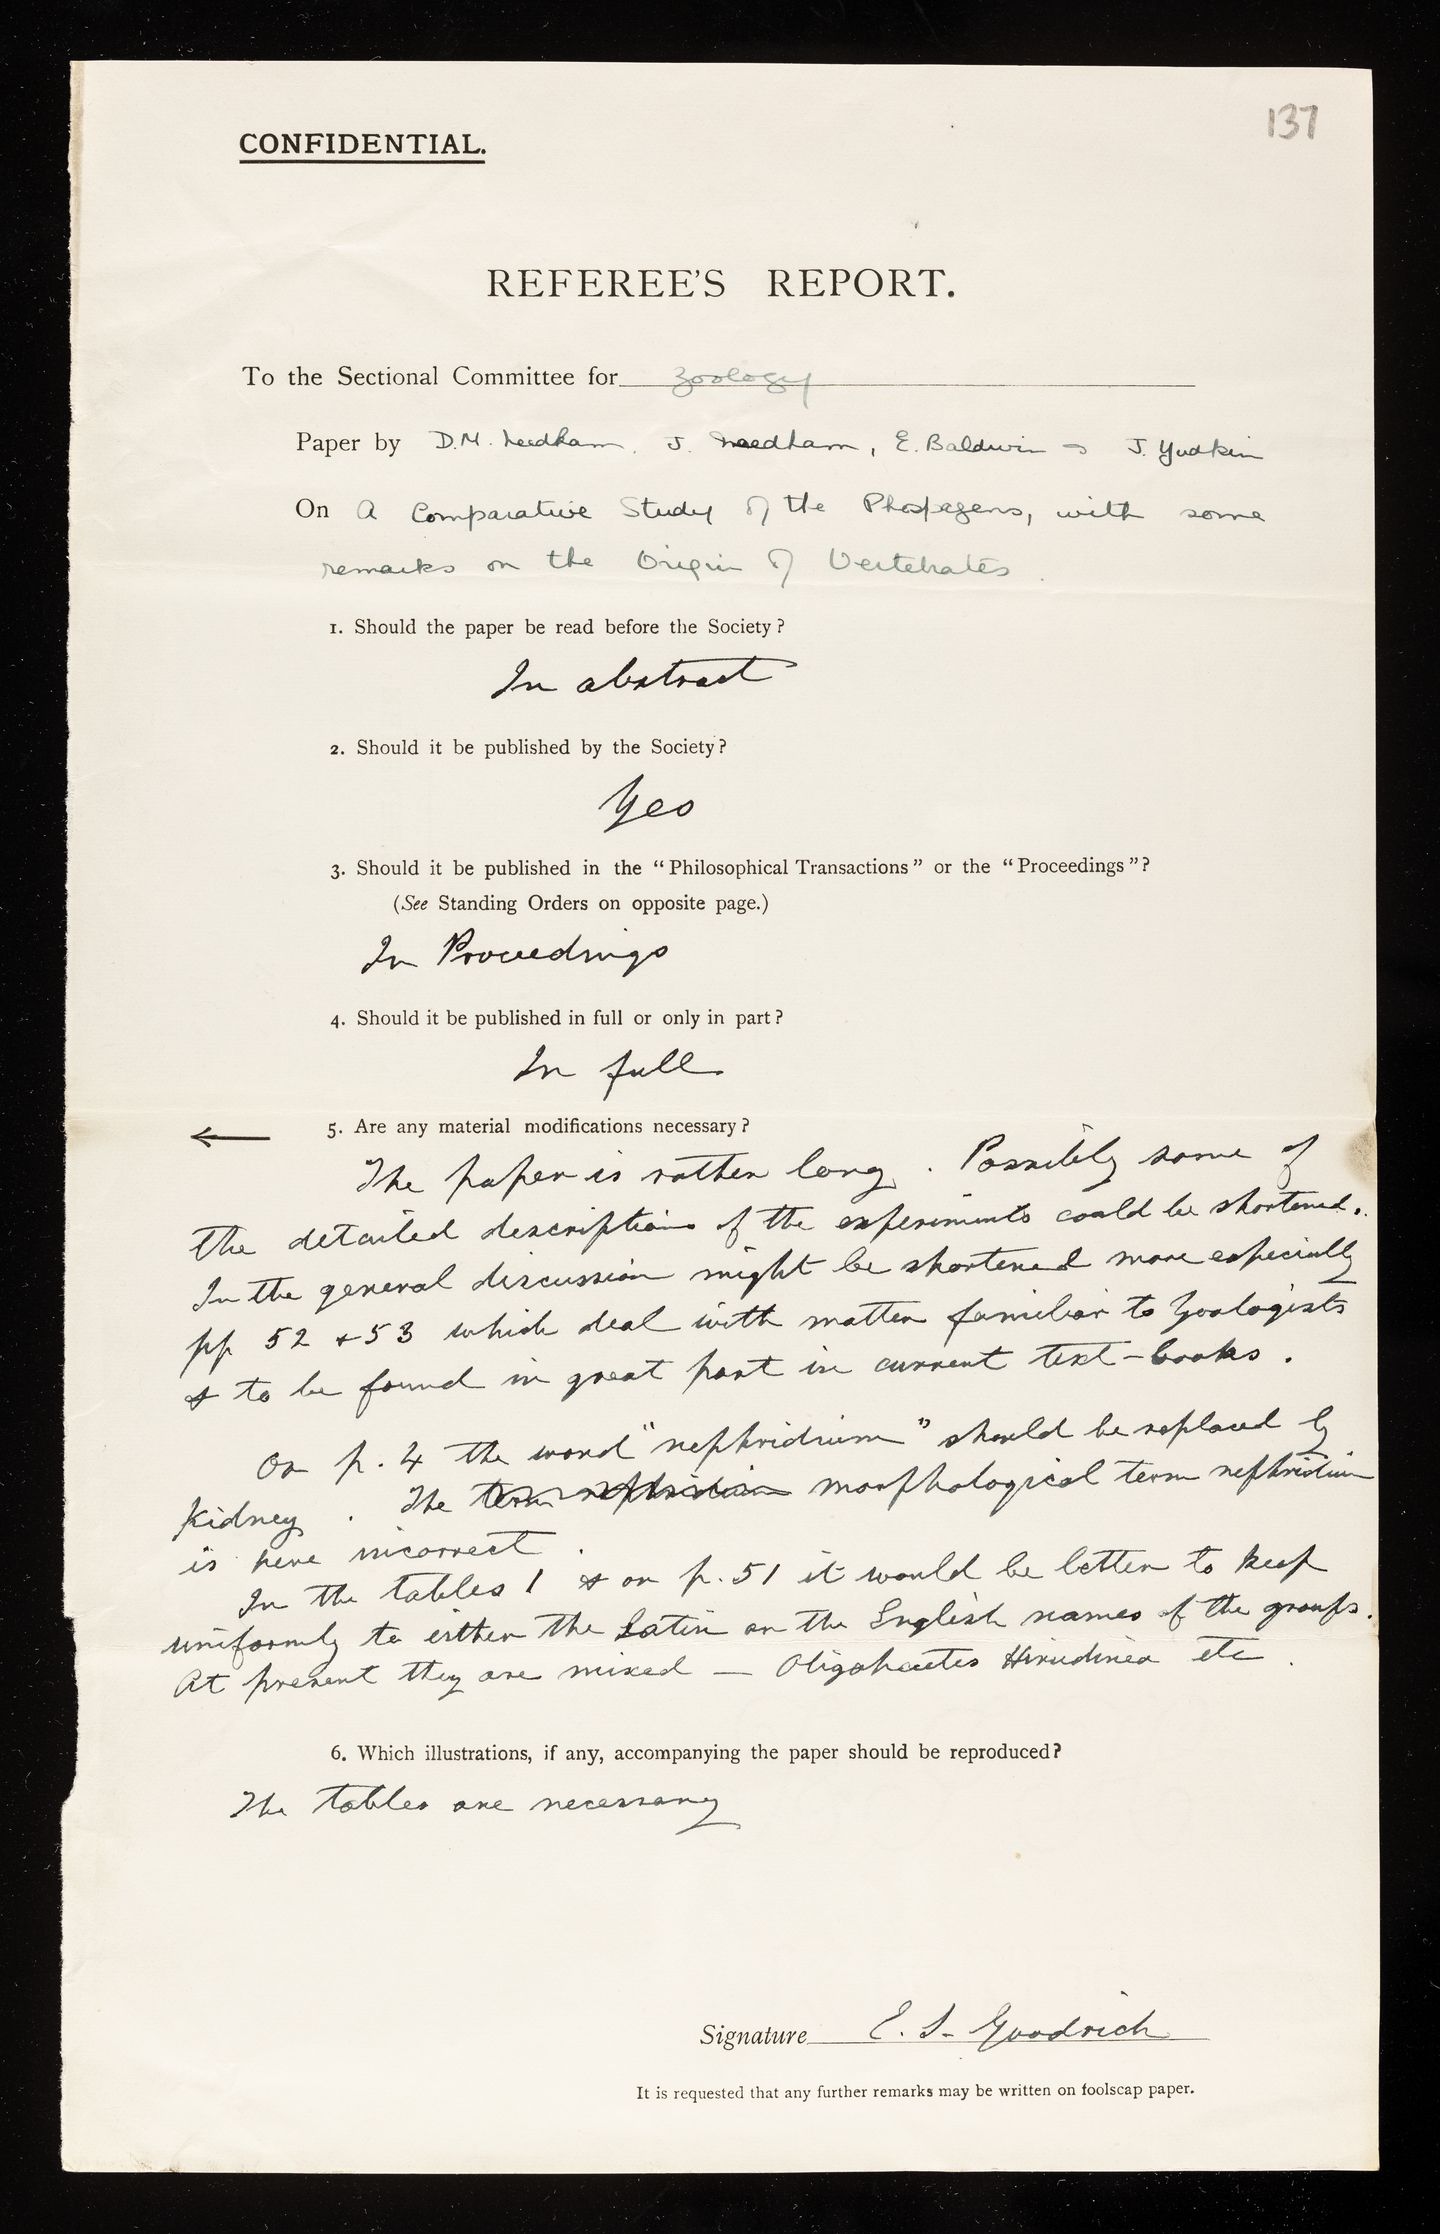 137
CONFIDENTIAL.
REFEREE'S REPORT.
To the Sectional Committee for Zoology
Paper by D.M. Needham, J. Needham, E. Baldwin & J. Yudkin
On A Comparative Study of the Phosphagens, with some
remarks on the Origin of Vertebrates.
1. Should the paper be read before the Society?
In abstract
2. Should it be published by the Society?
Yes
3. Should it be published in the "Philosophical Transactions" or the "Proceedings"?
(See Standing Orders on opposite page.)
In Proceedings
4. Should it be published in full or only in part?
In full
← 5. Are any material modifications necessary?
The paper is rather long. Possibly some of
the detailed descriptions of the experiments could be shortened.
In the general discussion might be shortened more especially
pp 52 & 53 which deal with matter familiar to Zoologists
& to be found in great part in current text-books.
On p. 4 the word "nephridium" should be replaced by
kidney. The term nephridium morphological term nephridium
is here incorrect.
In the tables 1 & on p. 51 it would be better to keep
uniformly to either the Latin or the English names of the groups.
At present they are mixed — Oligochaetes Hirudinea etc.
6. Which illustrations, if any, accompanying the paper should be reproduced?
The tables are necessary
Signature E. S. Goodrich
It is requested that any further remarks may be written on foolscap paper.